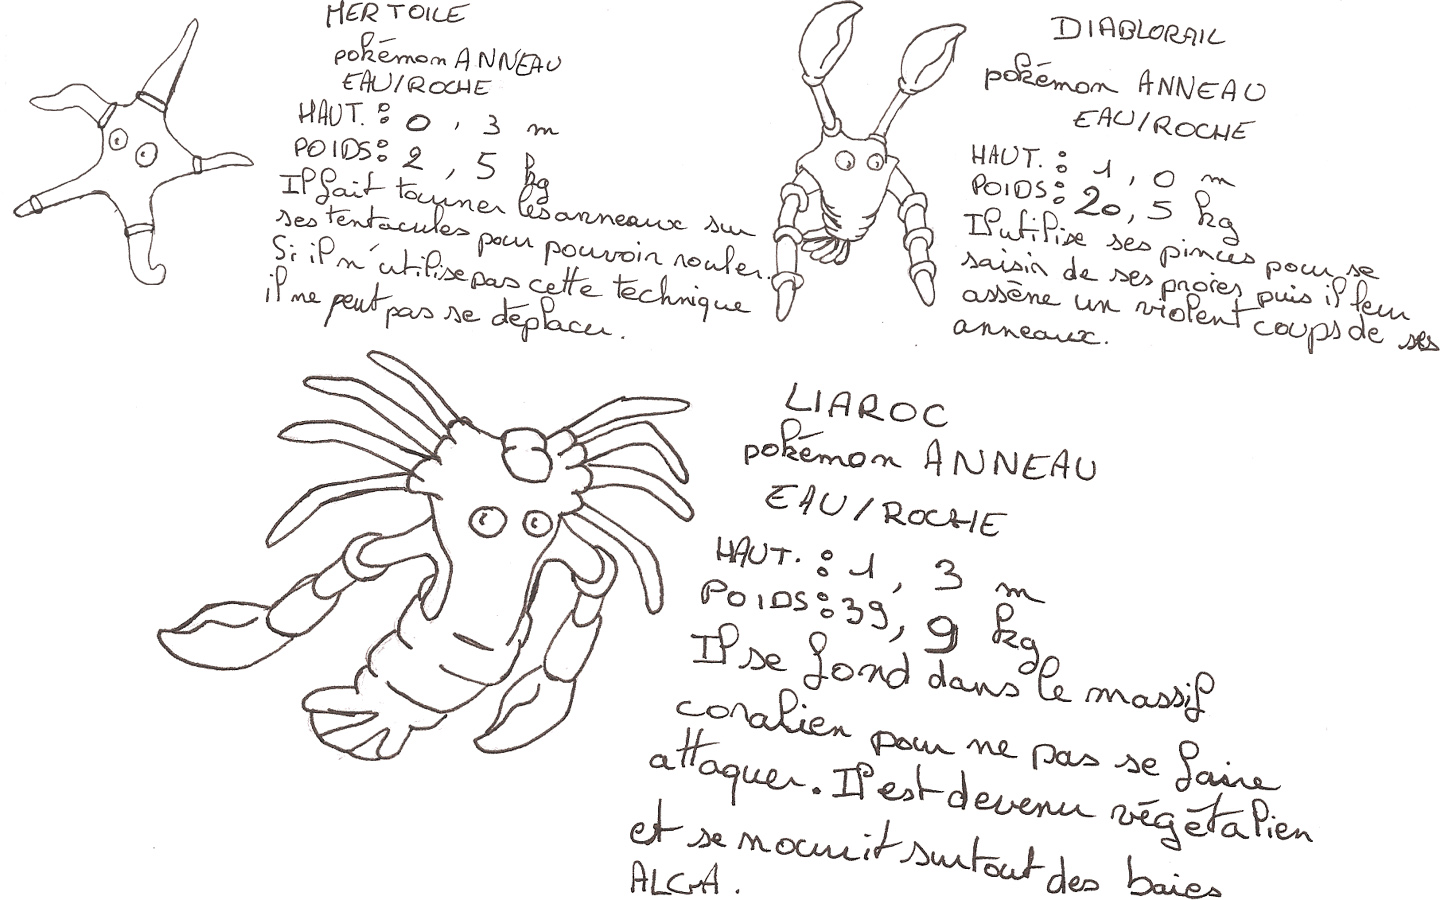 MERTOILE
pokémon ANNEAU
EAU/ROCHE
HAUT. : 0,3 m
POIDS: 2,5 kg
Il fait tourner les anneaux sur
ses tentacules pour pouvoir rouler.
Si il n'utilise pas cette technique
il ne peut pas se déplacer.
DIABLORAIL
pokémon ANNEAU
EAU/ROCHE
HAUT. : 1,0 m
POIDS: 20,5 kg
Il utilise ses pinces pour se
saisir de ses proies puis il leur
assène un violent coups de ses
anneaux.
LIAROC
pokémon ANNEAU
EAU/ROCHE
HAUT. : 1,3 m
POIDS: 39,9 kg
Il se fond dans le massif
coralien pour ne pas se faire
attaquer. Il est devenu végétalien
et se nourrit surtout des baies
ALGA.